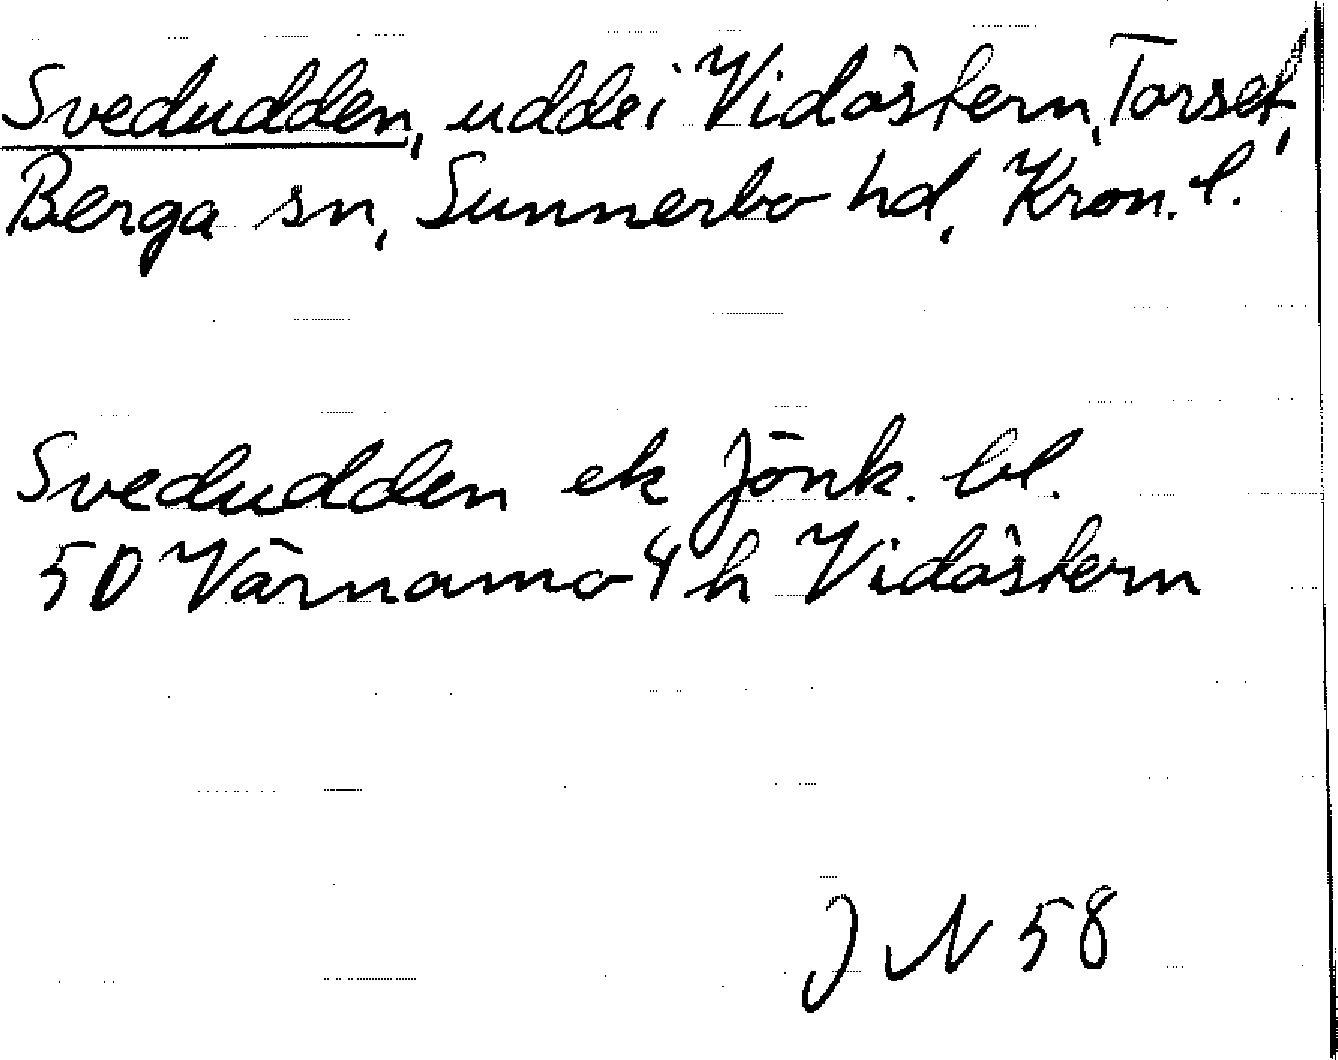 Svedudden, udde i Vidöstern, Torset,
Berga sn, Sunnerbo hd, Kron. l.
Svedudden ek Jönk. bl.
5D Värnamo 4 h Vidöstern
J N 58